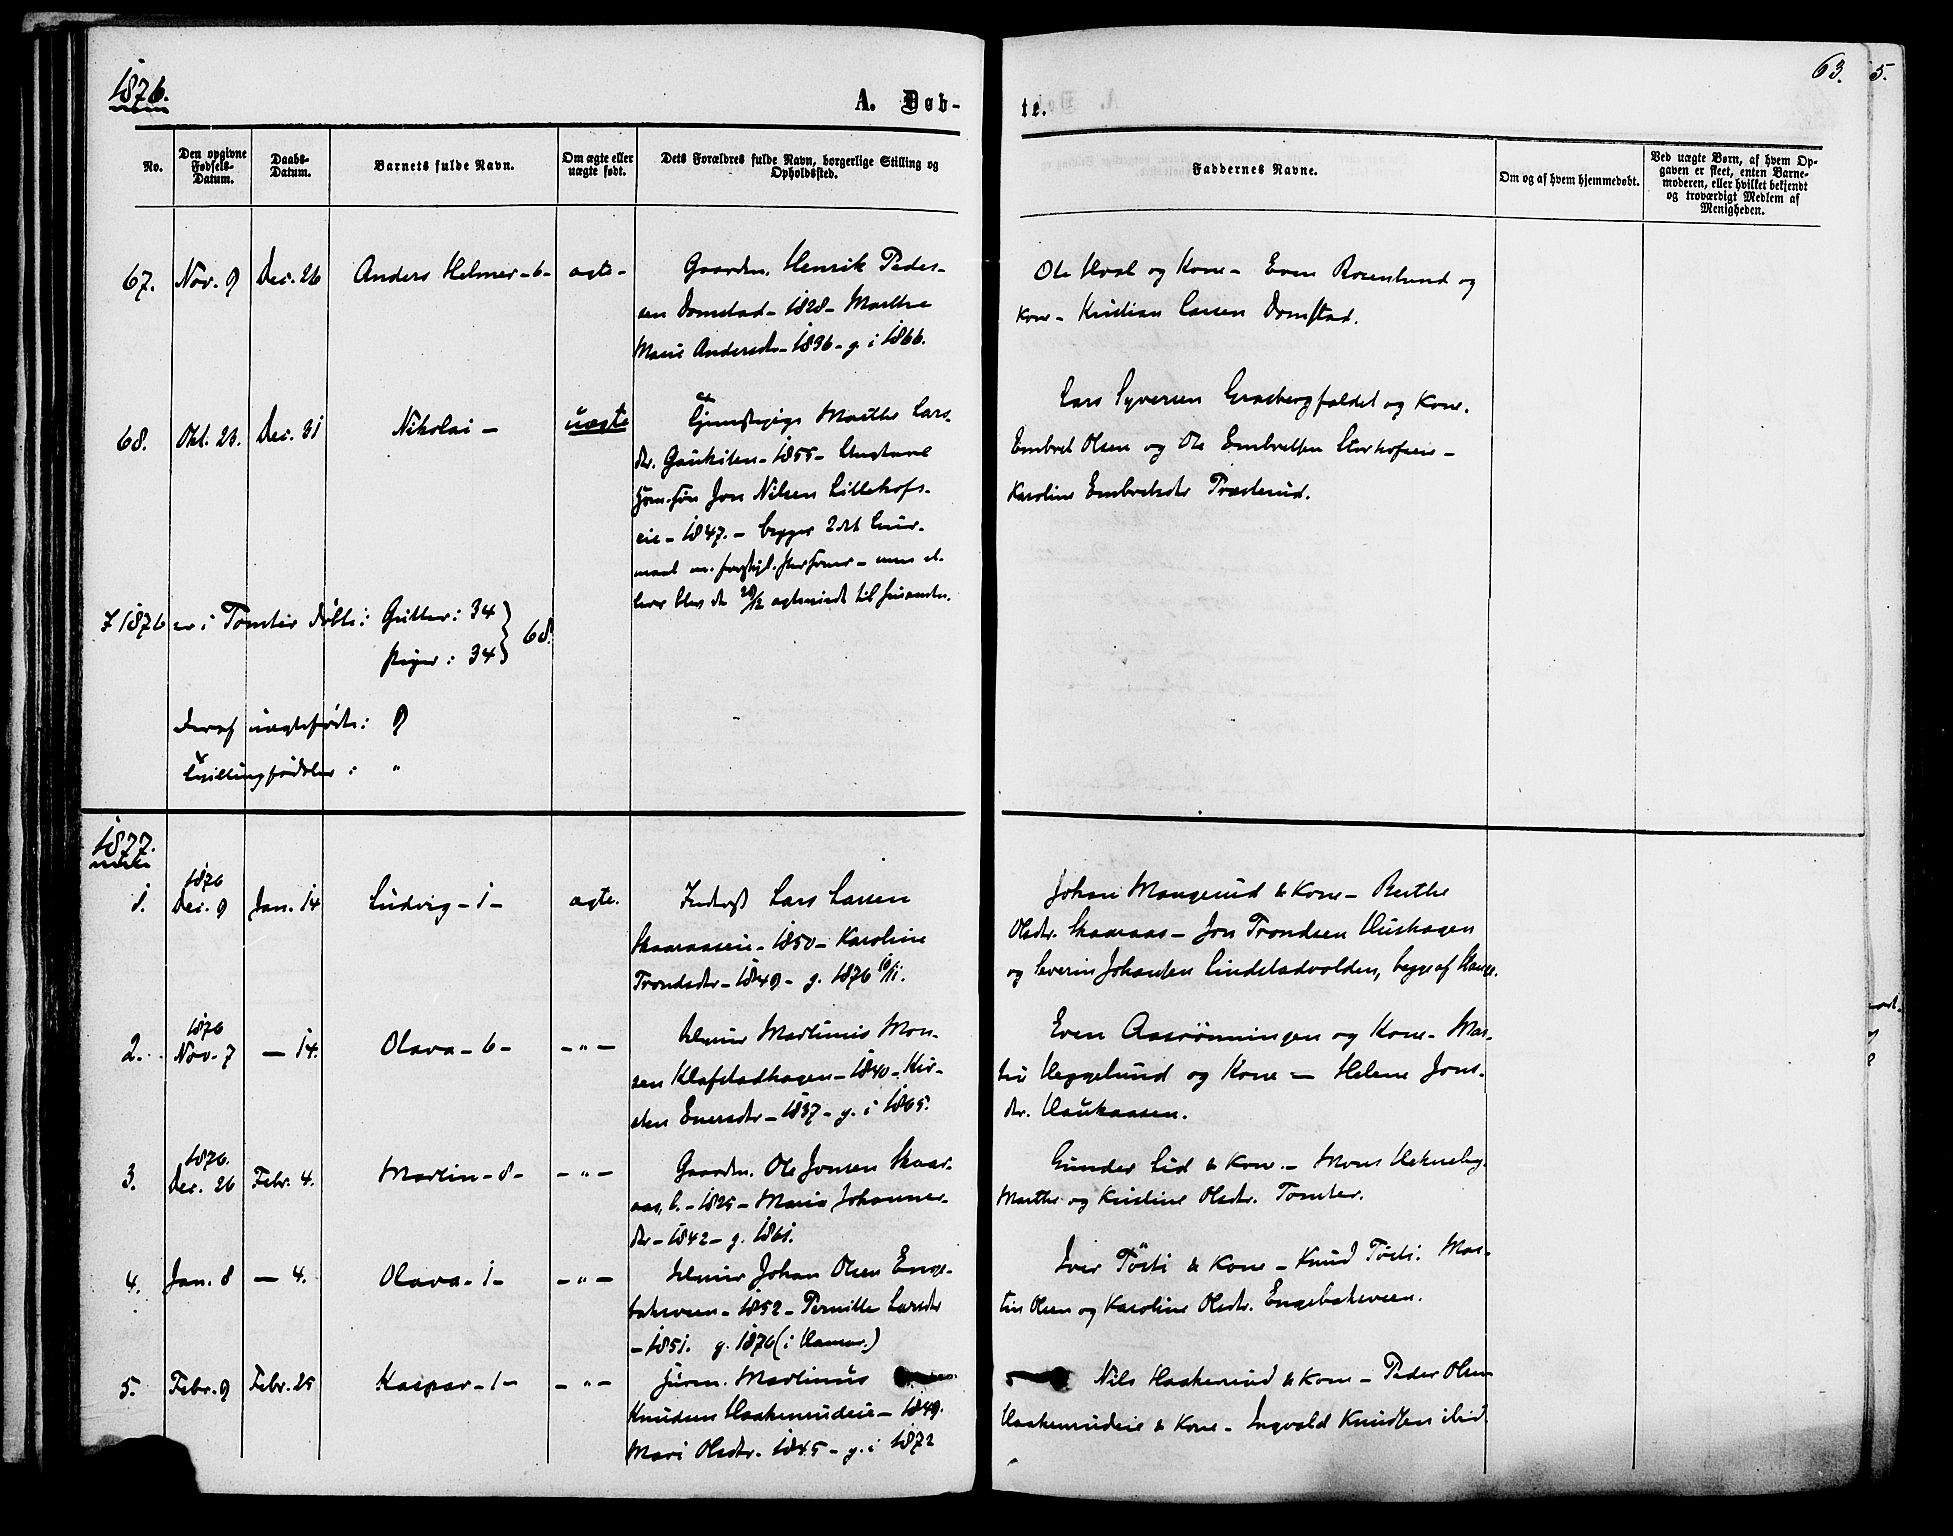 1876.
63.
5.
A. Døb-
te.
No.
Den opgivne Fødsels-Datum.
Daabs-Datum.
Barnets fulde Navn.
Om ægte eller uægte født.
Dets Forældres fulde Navn, borgerlige Stilling og Opholdssted.
Faddernes Navne.
Om og af hvem hjemmedøbt.
Ved uægte Børn, af hvem Op-
gaven er skeet, enten Barne-
moderen, eller hvilket bekjendt
og troværdigt Medlem af
Menigheden.
67. Nov. 9 Dec. 26 Anders Helmer - 6 - ægte -
Gaardm. Henrik Peder-
sen Domstad - 1828 - Marthe
Marie Andersdtr - 1836 - g. i 1866.
Ole Hval og Kone - Even Rosenlund og
Kone - Kristian Larsen Domstad.
68. Okt. 23. Dec. 31 Nikolai - uægte
Tjenestepige Marthe Lars-
dtr. Gaukilen - 1855 - Ungkarl
Jon Nilsen Lillehofs-
eie - 1847. - begges 2det Leier-
maal m. forskjl. Personer - men
blev de 28/12 ægteviede til hinanden.
Lars Syversen Grasbergfaldet og Kone.
Embret Olsen og Ole Embretsen Storhofseie -
Karoline Embretsdtr Præsterud.
I 1876 er i Tomter døbte: Gutter: 34
Piger: 34 } 68.
deraf uægtefødte: 9
Tvillingfødsler: "
1877.
1. 1876 Dec. 9 Jan. 14 Ludvig - 1 - ægte.
Inderst Lars Larsen
Skaaraaseie - 1850 - Karoline
Trondsdtr - 1849 - g. 1876 10/11.
Johan Mangerud & Kone - Berthe
Olsdtr. Skaaraas - Jon Trondsen Hushagen
og Severin Johansen Lindstadvolden, begge af Stange.
2. 1876 Nov. 7 - 14. Olava - 6 - - " -
Huusm. Martinus Mon-
sen Klafstadhagen - 1840 - Kir-
sten Evensdtr - 1837 - g. i 1865.
Even Aasrønningen og Kone - Mar-
tin Heggelund og Kone - Helene Jons-
dtr. Haukaasen.
3. 1876. Dec. 26 Febr. 4. Martin - 8 - - " -
Gaardm. Ole Jonsen Skaar-
aas, l. - 1825 - Maria Johannes-
dtr - 1842 - g. 1861.
Gunder Lid & Kone. - Mons Hekneby.
Marthe og Kristine Olsdtr. Tomter.
4. Jan. 8 - 4. Olava - 1 - - " -
Johan Olsen Enge-
baksveen - 1852 - Pernille Larsdtr
- 1851. g. 1876 (i Hamar.)
Iver Tösti & Kone - Knud Tösti. Mar-
tin Olsen og Karoline Olsdtr. Engebaksveen.
5. Febr. 9 Febr. 25 Kaspar - 1 - - " -
Martinus
Knudsen Haakenrudeie - 1849.
Mari Olsdtr. 1845 - g. i 1872
Nils Haakenrud & Kone - Peder Olsen
Haakenrudeie & Kone - Ingvald Knudsen ibid